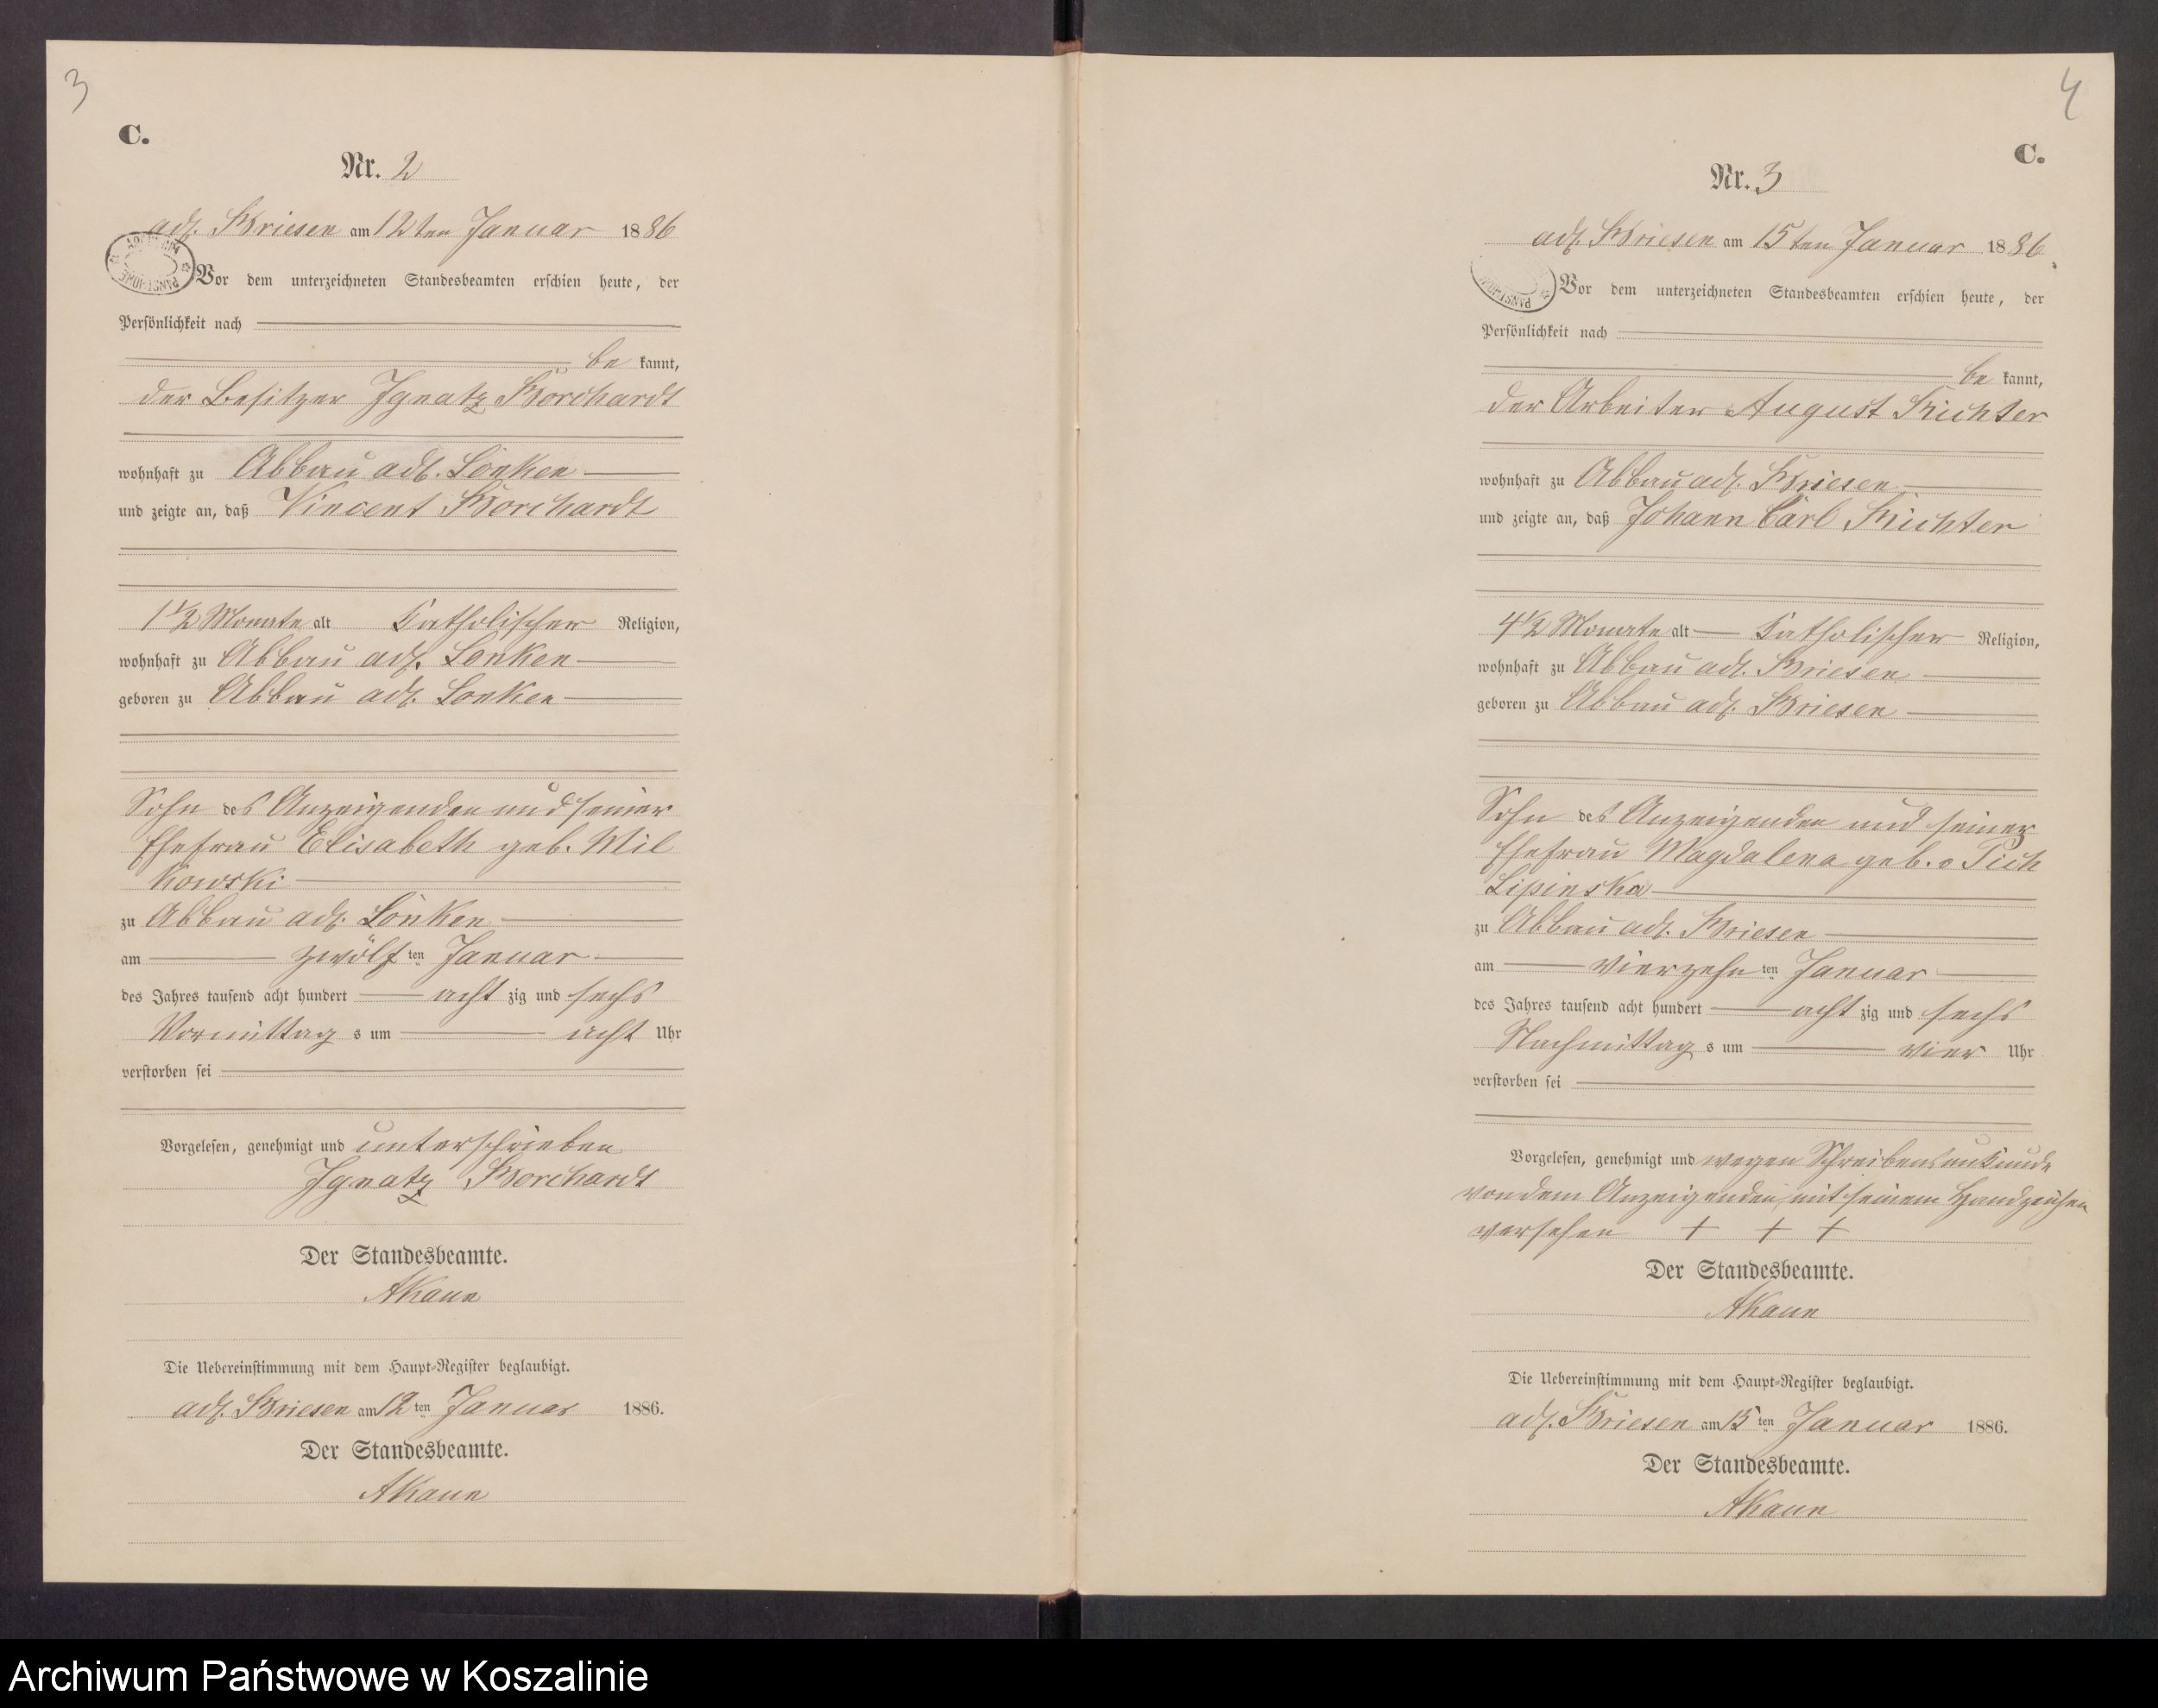 3
C.
Nr. 2
adl. Briesen am 12ten Januar 1886
Vor dem unterzeichneten Standesbeamten erschien heute, der
Persönlichkeit nach
be kannt,
der Besitzer Ignatz Borchardt
wohnhaft zu Abbau adl. Lonken
und zeigte an, daß Vincent Borchardt
1 1/2 Monate alt Katholischer Religion,
wohnhaft zu Abbau adl. Lonken
geboren zu Abbau adl. Lonken
Sohn des Anzeigenden und seiner
Ehefrau Elisabeth geb. Mil
kowski
zu Abbau adl. Lonken
am zwölf ten Januar
des Jahres tausend acht hundert acht zig und sechs
Vormittag s um acht Uhr
verstorben sei
Vorgelesen, genehmigt und unterschrieben
Ignatz Borchardt
Der Standesbeamte.
AKaun
Die Uebereinstimmung mit dem Haupt-Register beglaubigt.
adl. Briesen am 12 ten Januar 1886.
Der Standesbeamte.
AKaun
4
C.
Nr. 3
adl. Briesen am 15ten Januar 1886.
Vor dem unterzeichneten Standesbeamten erschien heute, der
Persönlichkeit nach
be kannt,
der Arbeiter August Richter
wohnhaft zu Abbau adl. Briesen
und zeigte an, daß Johann Carl Richter
4 1/2 Monate alt Katholischer Religion,
wohnhaft zu Abbau adl. Briesen
geboren zu Abbau adl. Briesen
Sohn des Anzeigenden und seiner
Ehefrau Magdalena geb. v Pich
Lipinska
zu Abbau adl. Briesen
am vierzehn ten Januar
des Jahres tausend acht hundert acht zig und sechs
Nachmittag s um vier Uhr
verstorben sei
Vorgelesen, genehmigt und wegen Schreibensunkunde
von dem Anzeigenden mit seinem Handzeichen
versehen + + +
Der Standesbeamte.
AKaun
Die Uebereinstimmung mit dem Haupt-Register beglaubigt.
adl. Briesen am 15 ten Januar 1886.
Der Standesbeamte.
AKaun
Archiwum Państwowe w Koszalinie